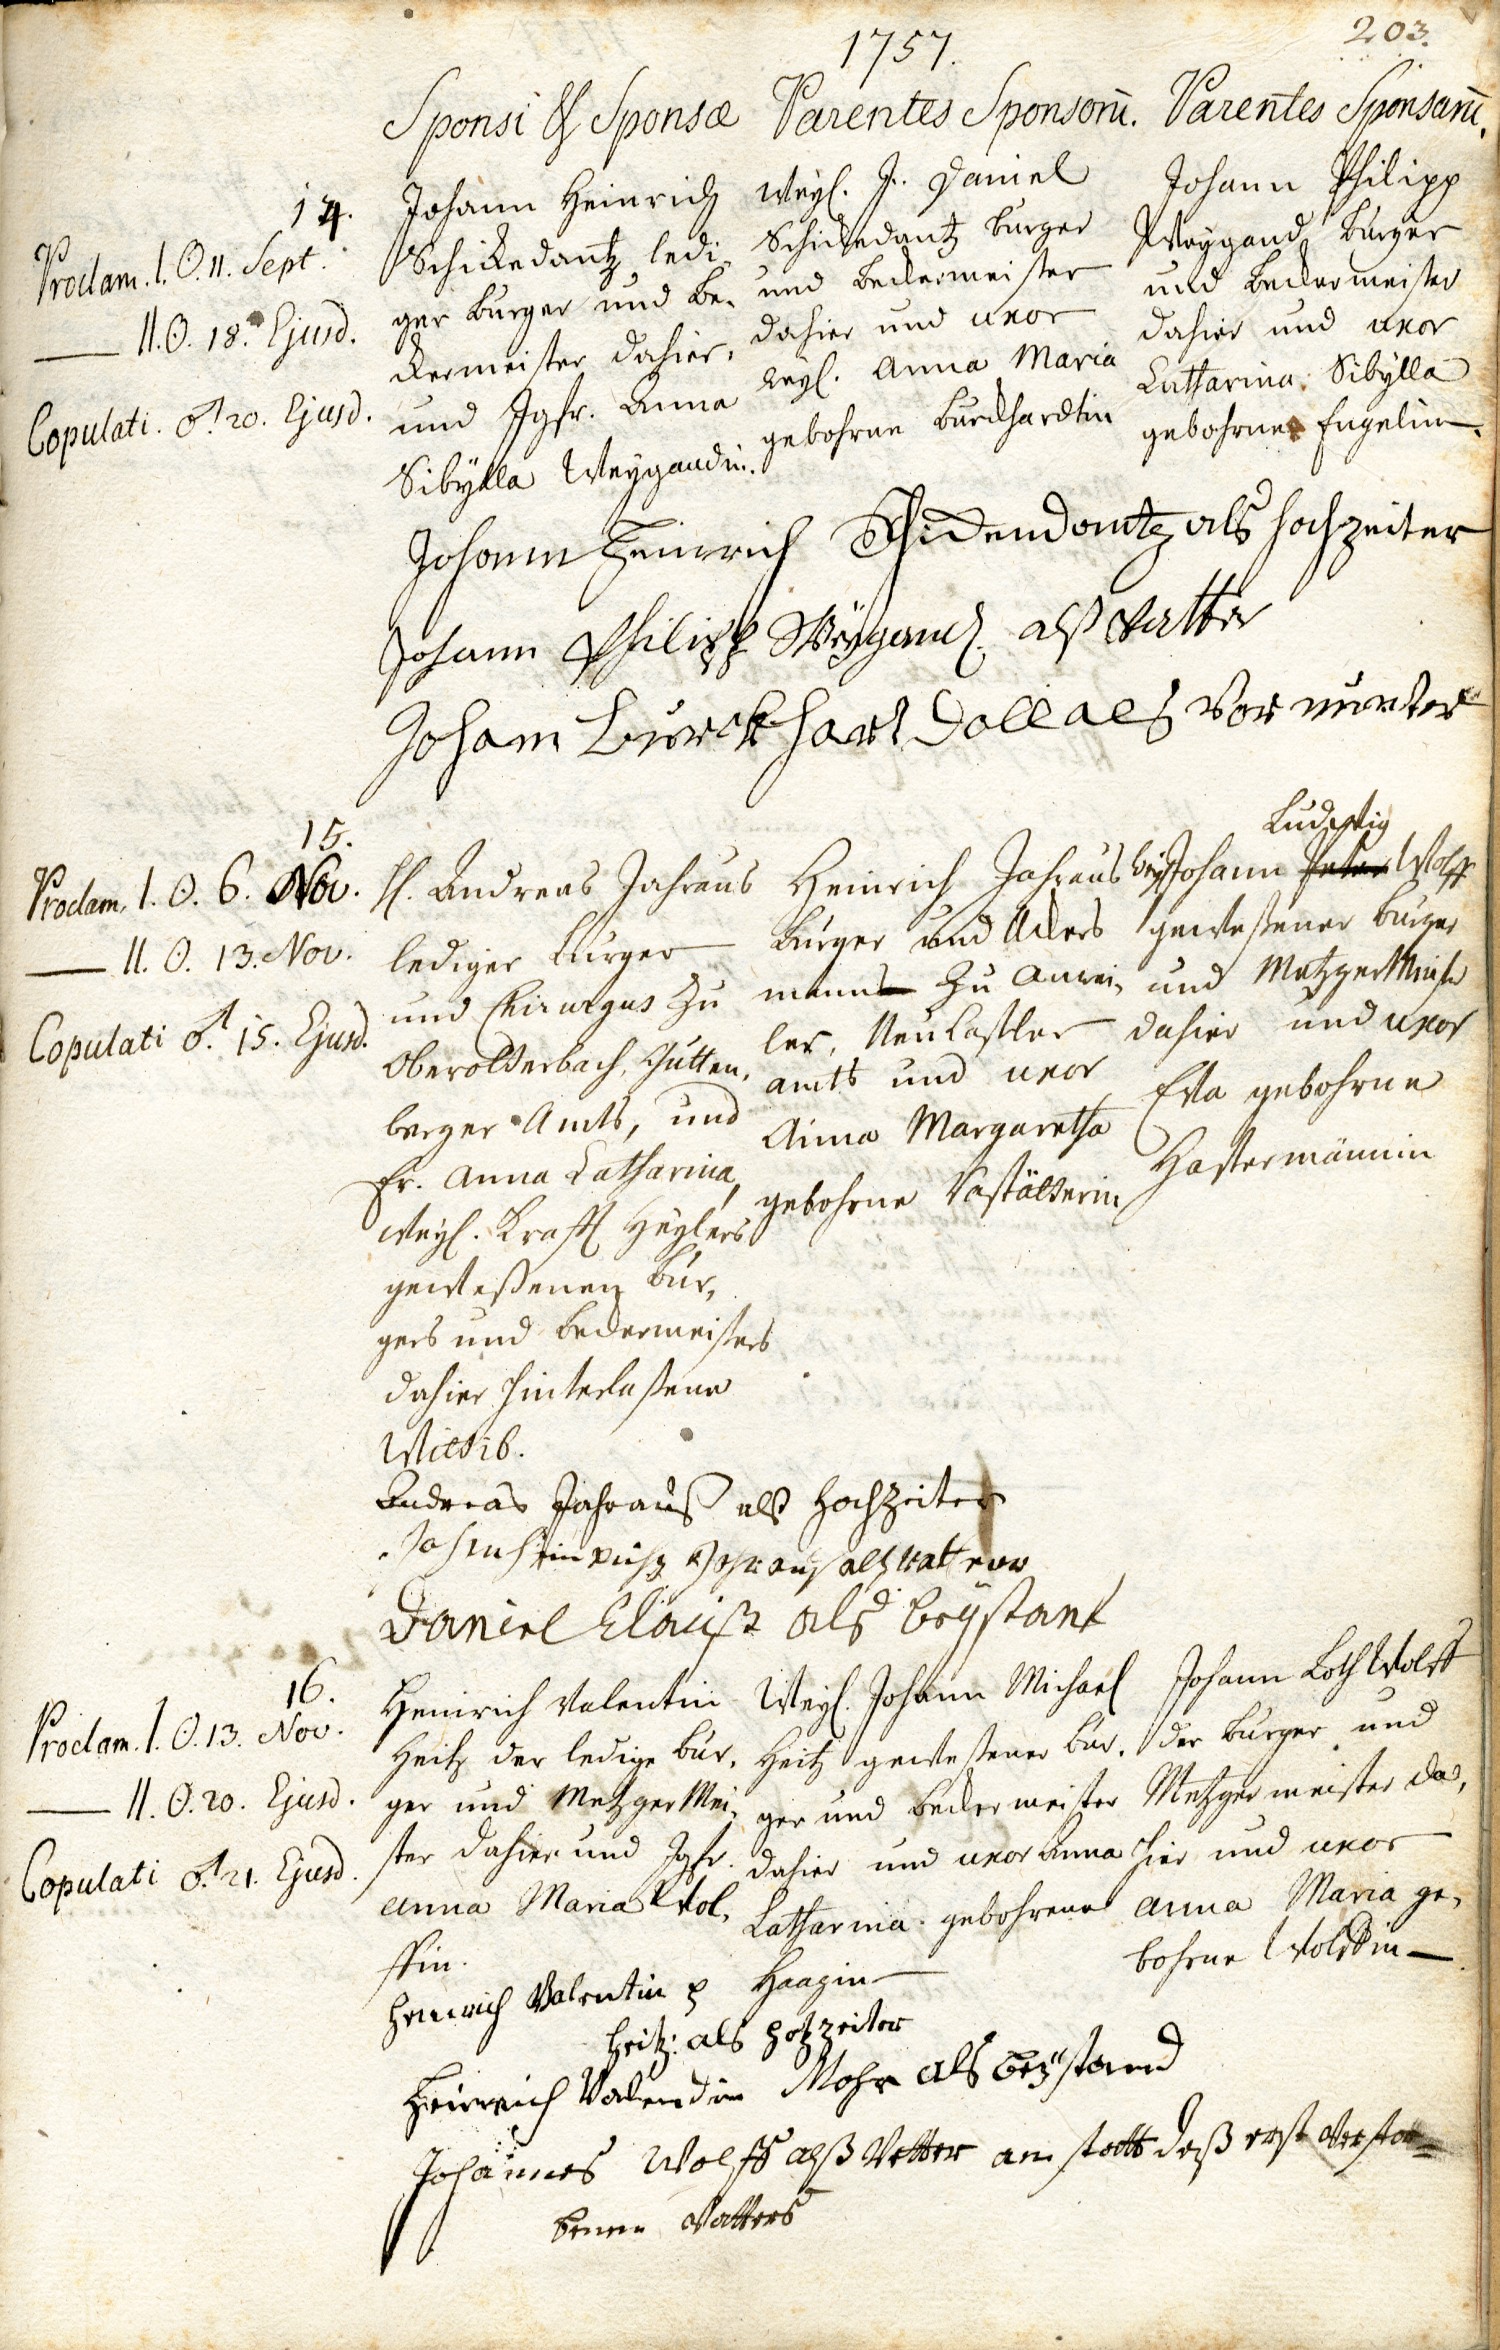 203.
1757.
Sponsi & Sponsæ
Parentes Sponsorū.
Parentes Sponsarū.
14.
Proclam. I. ☉. 11. Sept.
— II. ☉. 18. Ejusd.
Copulati. ♂. 20. Ejusd.
Johann Heinrich
Schickedantz ledi-
ger burger und be-
ckermeister dahier,
und Jgfr. Anna
Sibÿlla Weÿgandin.
Weyl. J. Daniel
Schickedantz burger
und beckermeister
dahier und uxor
weyl. Anna Maria
gebohrne Burckhardtin
Johann Philipp
Weygand burger
und beckermeister
dahier und uxor
Catharina Sibÿlla
gebohrne Engelin.
Johann Heinrich Schickendantz als hochzeiter
Johann Philipp Weÿgand als Vatter
Johann Burckhart Doll als Vormunter
15.
Proclam. I. ☉. 6. Nov.
— II. ☉. 13. Nov.
Copulati ♂. 15. Ejusd.
H. Andreas Jahraus
lediger burger
und Chirurgus zu
Oberotterbach, Gutten-
berger Amts, und
Fr. Anna Catharina,
weyl. Krafft Heylers
geweßenen bur-
gers und beckermeisters
dahier hinterlaßene
Wittib.
Heinrich Jahraus
burger und Ackers
mann zu Anwei-
ler, Neu Castler
amts und uxor
Anna Margaretha
gebohrne Vastätterin
Ludwig
weyl Johann Peter Wolff
geweßener burger
und Metzger Meister
dahier und uxor
Eva gebohrne
Hastermännin
Andreas Jahrauß als Hochzeiter
Johan Heinrich Jahrauß als Vatter
Daniel Clauß als beÿstant
16.
Proclam. I. ☉. 13. Nov.
— II. ☉. 20. Ejusd.
Copulati ♂. 21. Ejusd.
Heinrich Valentin
Heitz der ledige bur-
ger und Metzger Mei-
ster dahier und Jgfr.
Anna Maria Wol-
ffin.
Weyl. Johann Michael
Heitz geweßener bur-
ger und beckermeister
dahier und uxor Anna
Catharina gebohrene
Haagin
Johann Loth Wolff
der burger und
Metzgermeister da-
hier und uxor
Anna Maria ge-
bohrne Wolffin
Heinrich Valentin
Heitz: als hochzeiter
Heinrich Valendin Mohr als beÿstand
Johannes Wolff alß Vetter an statt deß erst verstor-
benen Vatters